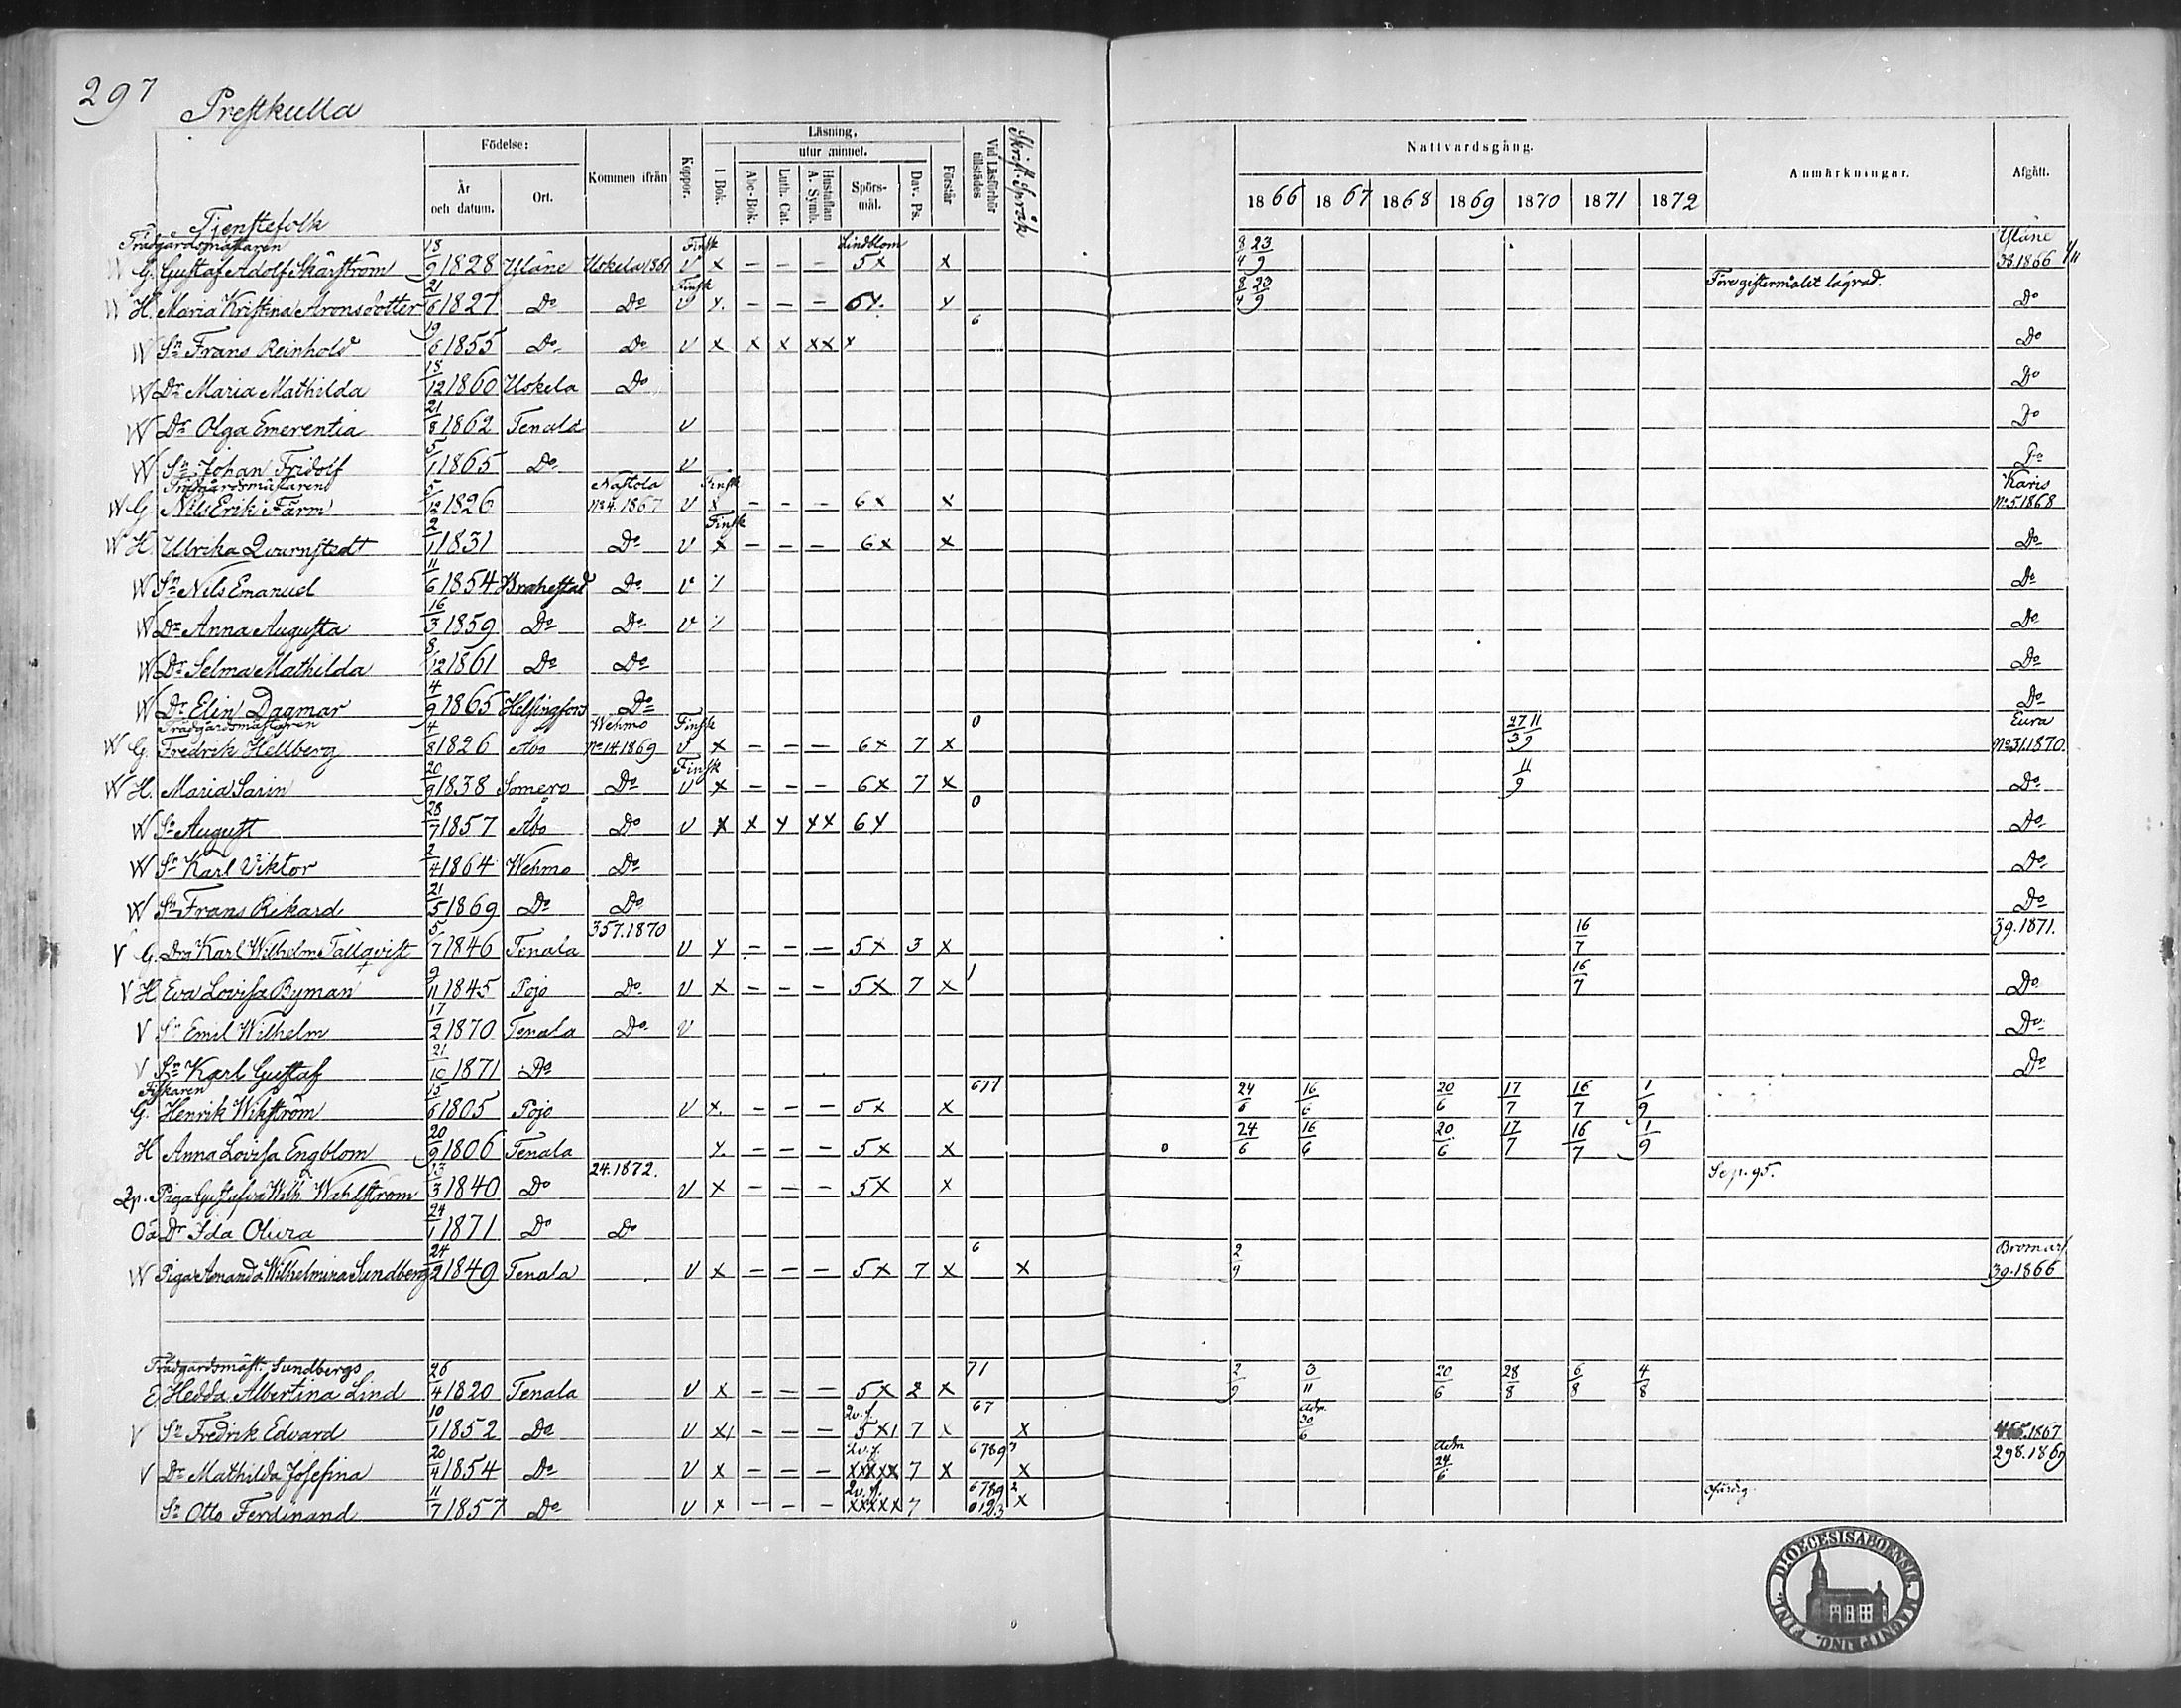 297
Prestkulla
Födelse:
Läsning,
utur minnet.
Nattvardsgång.
År och datum.
Ort.
Kommen ifrån
Koppor.
I Bok.
Abc-Bok.
Luth. Cat.
Hustaflan A. Symb.
Spörs-mål.
Dav. Ps.
Förstår
Vid Läsförhör tillstädes
Skrift. Språk
1866 1867 1868 1869 1870 1871 1872
Anmärkningar.
Afgått.
Tjenstefolk
Trädgårdsmästaren Finsk Lindblom 8/4 23/9 Yläne
W G. Gustaf Adolf Skärström 18/9 1828 Yläne Uskela 1861 V x – – – 5x x 38.1866
W H. Maria Kristina Aronsdotter 21/6 1827 Do Do Finsk V x. – – – 6x. x 8/4 23/9 Före giftermålet lägrad. Do
W Sn Frans Reinhold 19/6 1855 Do Do V x x x xx x 6 Do
W Dr Maria Mathilda 18/12 1860 Uskela Do Do
W Dr Olga Emerentia 21/8 1862 Tenala V Do
W Sn Johan Fridolf 5/1 1865 Do V Do
Trädgårdsmästaren Nastola Finsk Karis
W G. Nils Erik Färm 5/12 1826 No 4.1867 V x – – – 6x x No 5.1868
W H. Ulrika Qvarnstedt 2/1 1831 Do V Finsk x – – – 6x x Do
W Sn Nils Emanuel 11/6 1854 Brahestad Do V Do
W Dr Anna Augusta 16/3 1859 Do Do V Do
W Dr Selma Mathilda 8/12 1861 Do Do Do
W Dr Elin Dagmar 4/9 1865 Helsingfors Do Do
Trädgårdsmästaren Wehmo Finsk 0 Eura
W G. Fredrik Hellberg 4/8 1826 Åbo No 14.1869 V x – – – 6x 7 x 27/3 11/9 No 31.1870.
W H. Maria Sarin 20/9 1838 Somero Do Finsk V x – – – 6x 7 x 11/9 Do
W Sn August 28/7 1857 Åbo Do V x x x xx 6x 0 Do
W Sn Karl Viktor 2/4 1864 Wehmo Do Do
W Sn Frans Rikard 21/5 1869 Do Do Do
V G. Drg Karl Wilhelm Tallqvist 5/7 1846 Tenala 357.1870 V x – – – 5x 3 x 16/7 39.1871.
V H Eva Lovisa Byman 9/11 1845 Pojo Do V x – – – 5x 7 x 1 16/7 Do
V Sn Emil Wilhelm 17/2 1870 Tenala Do V Do
V Sn Karl Gustaf 21/10 1871 Do Do
Fiskaren
G. Henrik Wikström 15/6 1805 Pojo V x. – – – 5x x 671 24/6 16/6 20/6 17/7 16/7 1/9
H Anna Lovisa Engblom 20/9 1806 Tenala x. – – – 5x x 0 24/6 16/6 20/6 17/7 16/7 1/9
Qp. Piga Gustafva Wilh. Wahlström 13/3 1840 Do 24.1872. V x – – – 5x x Se p. 95.
Oä Dr Ida Olivia 24/1 1871 Do Do
W Piga Amanda Wilhelmina Sundberg 24/2 1849 Tenala V x – – – 5x 7 x 6 x 2/9 Bromarf 39.1866
Trädgårdsmäst. Sundbergs
E Hedda Albertina Lind 26/4 1820 Tenala V x – – – 5x 2 x 71 2/9 3/11 20/6 28/8 6/8 4/8
V Sn Fredrik Edvard 10/1 1852 Do V x – – – 2v.f. 5x1 7 x 67 x Adm. 30/6 465.1867
V Dr Mathilda Josefina 20/4 1854 Do V x – – – 2v.f. xxxxx 7 x 6789 x Adm 24/6 298.1869
Sn Otto Ferdinand 11/7 1857 Do V x – – – 2v.f. xxxxx 7 6789 0123 x ofärdig.
DIOECESIS ABOENSIS MAGNI PRINC. FINL.